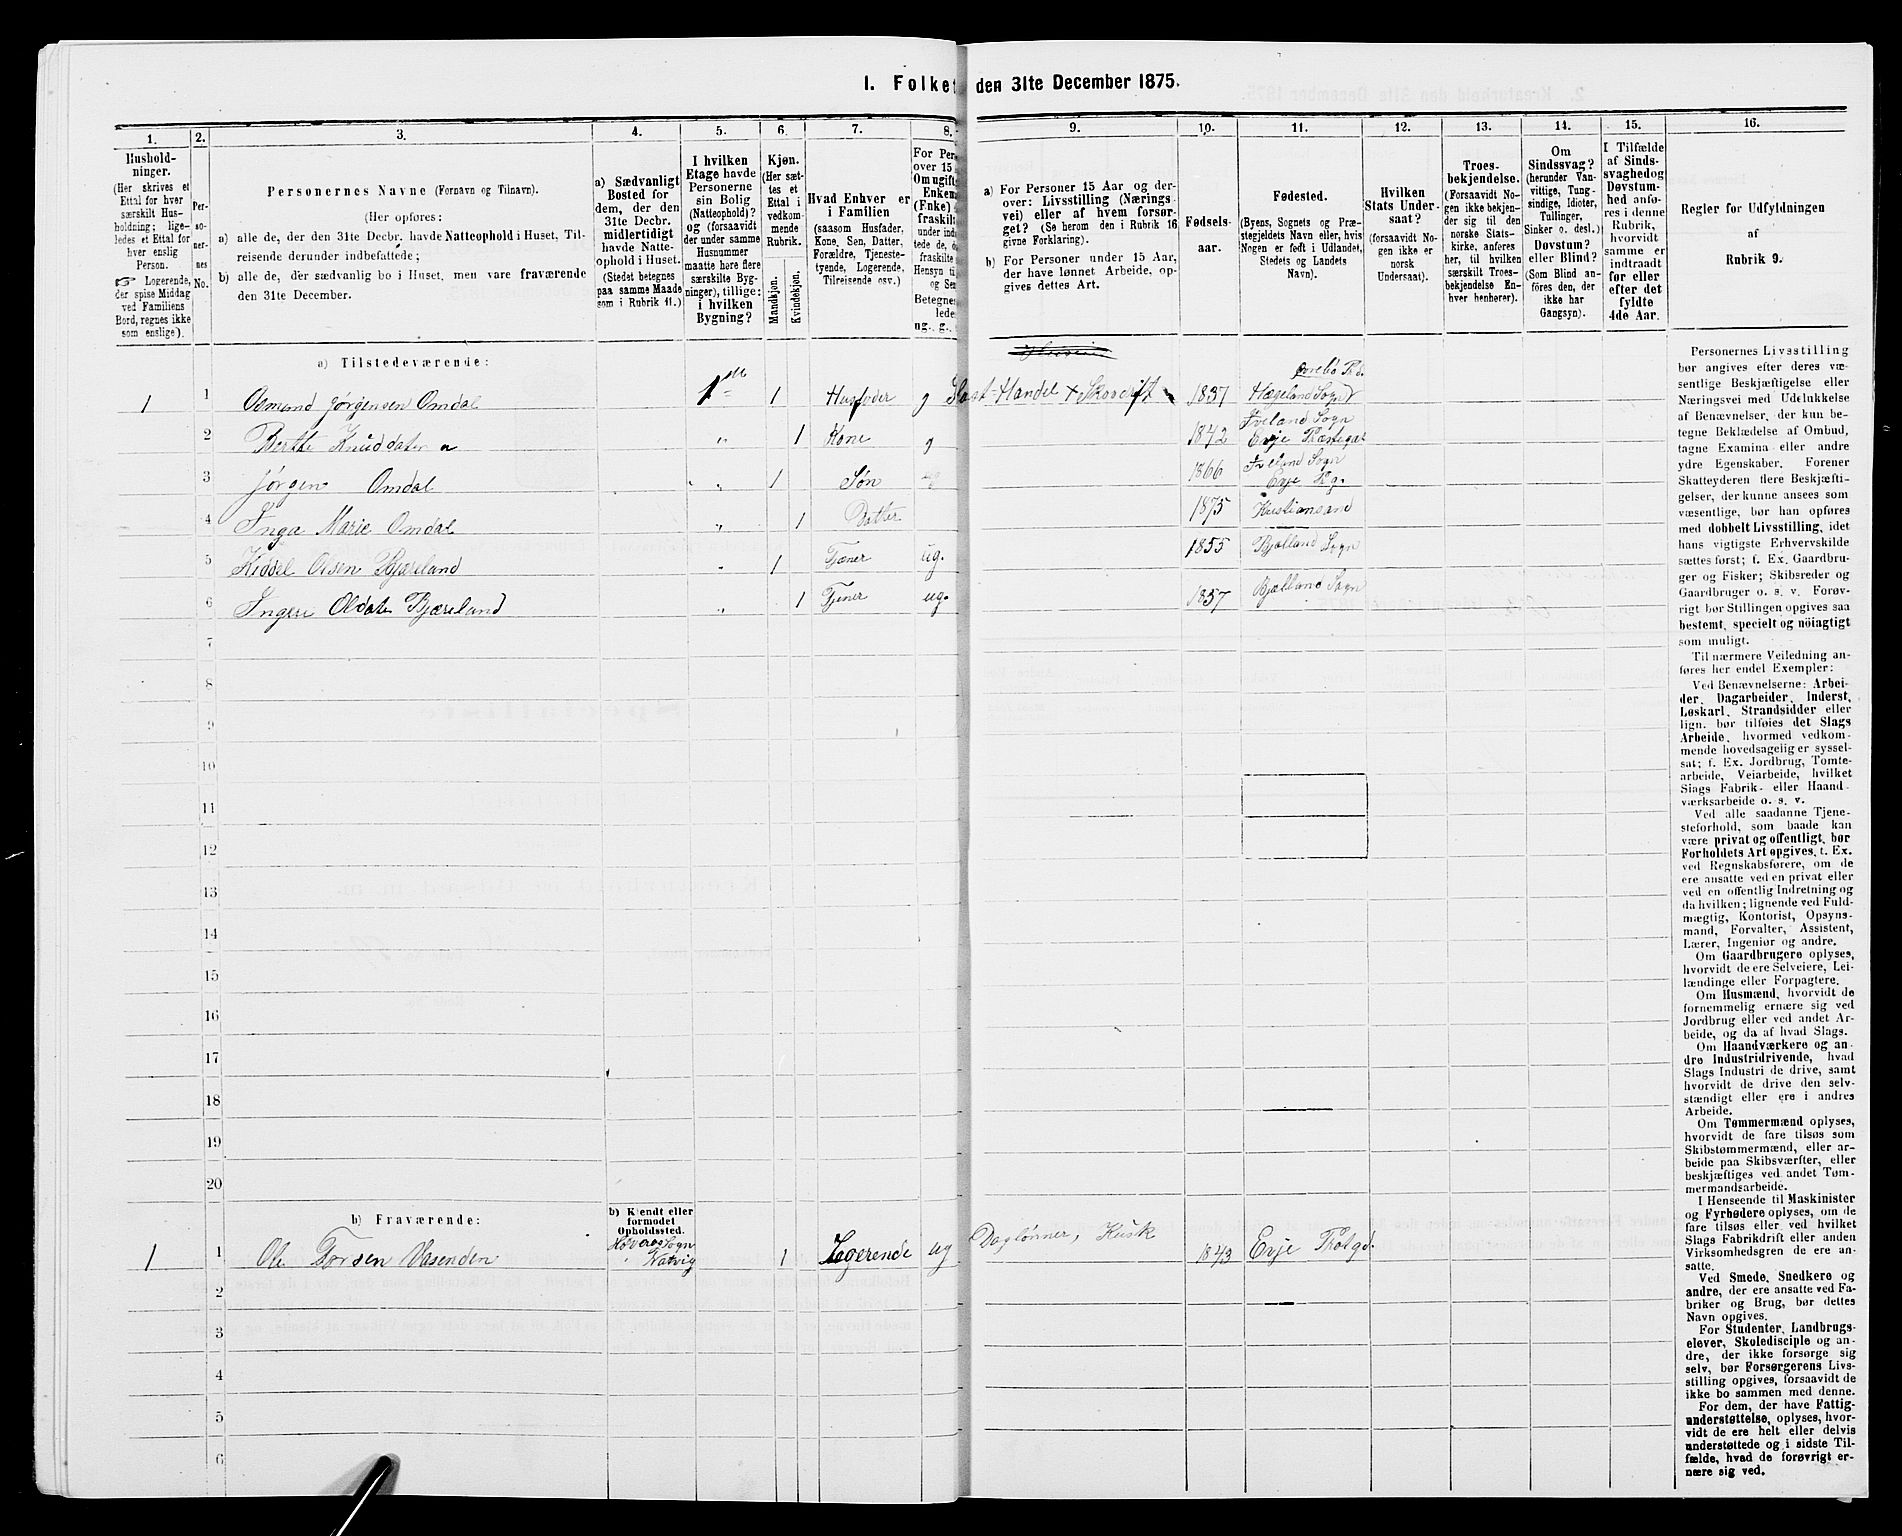 1. Folket
den 31te December 1875.
1.
2.
3.
4.
5.
6.
7.
8.
9.
10.
11.
12.
13.
14.
15.
16.
Hushold-
ninger.
(Her skrives et
Ettal for hver
særskilt Hus-
holdning; lige-
ledes et Ettal for
hver enslig
Person.
☞ Logerende,
der spise Middag
ved Familiens
Bord, regnes ikke
som enslige).
Per-
so-
ner-
nes
No.
Personernes Navne (Fornavn og Tilnavn).
(Her opføres:
a) alle de, der den 31te Decbr. havde Natteophold i Huset, Til-
reisende derunder indbefattede;
b) alle de, der sædvanlig bo i Huset, men vare fraværende
den 31te December.
a) Sædvanligt
Bosted for
dem, der den
31te Decbr.
midlertidigt
havde Natte-
ophold i Huset.
(Stedet betegnes
paa samme Maade
som i Rubrik 11.)
I hvilken
Etage havde
Personerne
sin Bolig
(Natteophold)?
og (forsaavidt
der under samme
Husnummer
maatte høre flere
særskilte Byg-
ninger), tillige:
i hvilken
Bygning?
Kjøn.
(Her sæt-
tes et
Ettal i
vedkom-
mende
Rubrik.
Mandkjøn.
Kvindekjøn.
Hvad Enhver er
i Familien
(saasom Husfader,
Kone, Søn, Datter,
Forældre, Tjeneste-
tyende, Logerende,
Tilreisende osv.)
For Per
over 15
Om ugift
Enkem
(Enke)
fraskilt
under ind
tede de, o
fraskilte
Hensyn ti
og Se
Betegnes
lede
ug., g.,
a) For Personer 15 Aar og der-
over: Livsstilling (Nærings
vei) eller af hvem forsør-
get? (Se herom den i Rubrik 16
givne Forklaring).
b) For Personer under 15 Aar,
der have lønnet Arbeide, op-
gives dettes Art.
Fødsels-
aar.
Fødested.
(Byens, Sognets og Præ-
stegjeldets Navn eller, hvis
Nogen er født i Udlandet,
Stedets og Landets
Navn).
Hvilken
Stats Under-
saat?
(forsaavidt No-
gen ikke er
norsk
Undersaat).
Troes-
bekjendelse.
(Forsaavidt No-
gen ikke bekjen-
der sig til den
norske Stats-
kirke, anføres
her, til hvilken
særskilt Troes-
bekjendelse En-
hver henhører).
Om
Sindssvag?
(herunder Van-
vittige, Tung-
sindige, Idioter,
Tullinger,
Sinker o. desl.)
Døvstum?
eller Blind?
(Som Blind an-
føres den, der
ikke har
Gangsyn).
I Tilfælde
af Sinds-
svaghed og
Døvstum-
hed anfø-
res i denne
Rubrik,
hvorvidt
samme er
indtraadt
før eller
efter det
fyldte
4de Aar.
Regler for Udfyldningen
af
Rubrik 9.
a) Tilstedeværende:
1 1 Osmund Jørgensen Omdal 1ste 1 Husfader g Handel + Skovdrift 1837 Hægeland Sogn
2 Berthe Knudsdater 〃 1 Kone g 1842 Iveland Sogn
Evje
3 Jørgen Omdal 〃 1 Søn 1866 Iveland Sogn
Evje Pg.
4 Inga Marie Omdal 〃 1 Datter 1875 Kristiansand
5 Kiddel Olsen Bjæreland 〃 1 Tjener ug. 1855 Bjælland Sogn
6 Ingeri Oldater Bjæreland 〃 1 Tjener ug. 1857 Bjælland Sogn
7
8
9
10
11
12
13
14
15
16
17
18
19
20
b) Fraværende:
b) Kjendt eller
formodet
Opholdssted.
1 1 Ole Torsen Vasenden 1 Logerende ug Daglønner, Kusk 1843 Evje
2
3
4
5
6
Personernes Livsstilling
bør angives efter deres væ-
sentlige Beskjæftigelse eller
Næringsvei med Udelukkelse
af Benævnelser, der kun be-
tegne Beklædelse af Ombud,
tagne Examina eller andre
ydre Egenskaber. Forener
Skatteyderen flere Beskjæfti-
gelser, der kunne ansees som
væsentlige, bør han opføres
med dobbelt Livsstilling, idet
hans vigtigste Erhvervskilde
sættes først; f. Ex. Gaardbru-
ger og Fisker; Skibsreder og
Gaardbruger o. s. v. Forøv-
rigt bør Stillingen opgives saa
bestemt, specielt og nöiagtigt
som muligt.
Til nærmere Veiledning an-
føres her endel Exempler:
Ved Benævnelserne: Arbei-
der, Dagarbeider, Inderst,
Løskarl, Strandsidder eller
lign. bør tilføies det Slags
Arbeide, hvormed vedkom-
mende hovedsagelig er syssel-
sat; f. Ex. Jordbrug, Tomte-
arbeide, Veiarbeide, hvilket
Slags Fabrik- eller Haand
værksarbeide o. s. v.
Ved alle saadanne Tjene-
steforhold, som baade kan
være privat og offentligt, bør
Forholdets Art opgives, f. Ex.
ved Regnskabsførere, om de
ere ansatte ved en privat eller
ved en offentlig Indretning og
da hvilken; lignende ved Fuld-
mægtig, Kontorist, Opsyns-
mand, Forvalter, Assistent,
Lærer, Ingeniør og andre.
Om Gaardbrugere oplyses,
hvorvidt de ere Selveiere, Lei-
lændinge eller Forpagtere.
Om Husmænd, hvorvidt de
fornemmelig ernære sig ved
Jordbrug eller ved andet Ar-
beide, og da af hvad Slags.
Om Haandværkere og an-
dre Industridrivende, hvad
Slags Industri de drive, samt
hvorvidt de drive den selv-
stændigt eller ere i andres
Arbeide.
Om Tømmermænd oplyses,
hvorvidt de fare tilsøs som
Skibstømmermænd, eller ar-
beide paa Skibsværfter, eller
beskjæftiges ved andet Tøm-
mermandsarbeide.
I Henseende til Maskinister
og Fyrbødere oplyses, om de
fare tilsøs eller ved hvilket
Slags Fabrikdrift eller anden
Virksomhedsgren de ere an-
satte.
Ved Smede, Snedkere og
andre, der ere ansatte ved Fa-
briker og Brug, bør dettes
Navn opgives.
For Studenter, Landbrugs-
elever, Skoledisciple og an-
dre, der ikke forsørge sig
selv, bør Forsørgerens Livs-
stilling opgives, forsaavidt de
ikke bo sammen med denne.
For dem, der have Fattig-
understøttelse, oplyses, hvor-
vidt de ere helt eller delvis
understøttede og i sidste Til-
fælde, hvad de forøvrigt er-
nære sig ved.